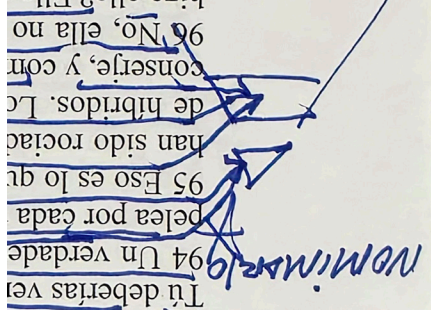 Tú deberías ver
94 Un verdade
pelea por cada
95 Eso es lo qu
han sido rociad
de híbridos. Lo
conserje, y com
96 No, ella no